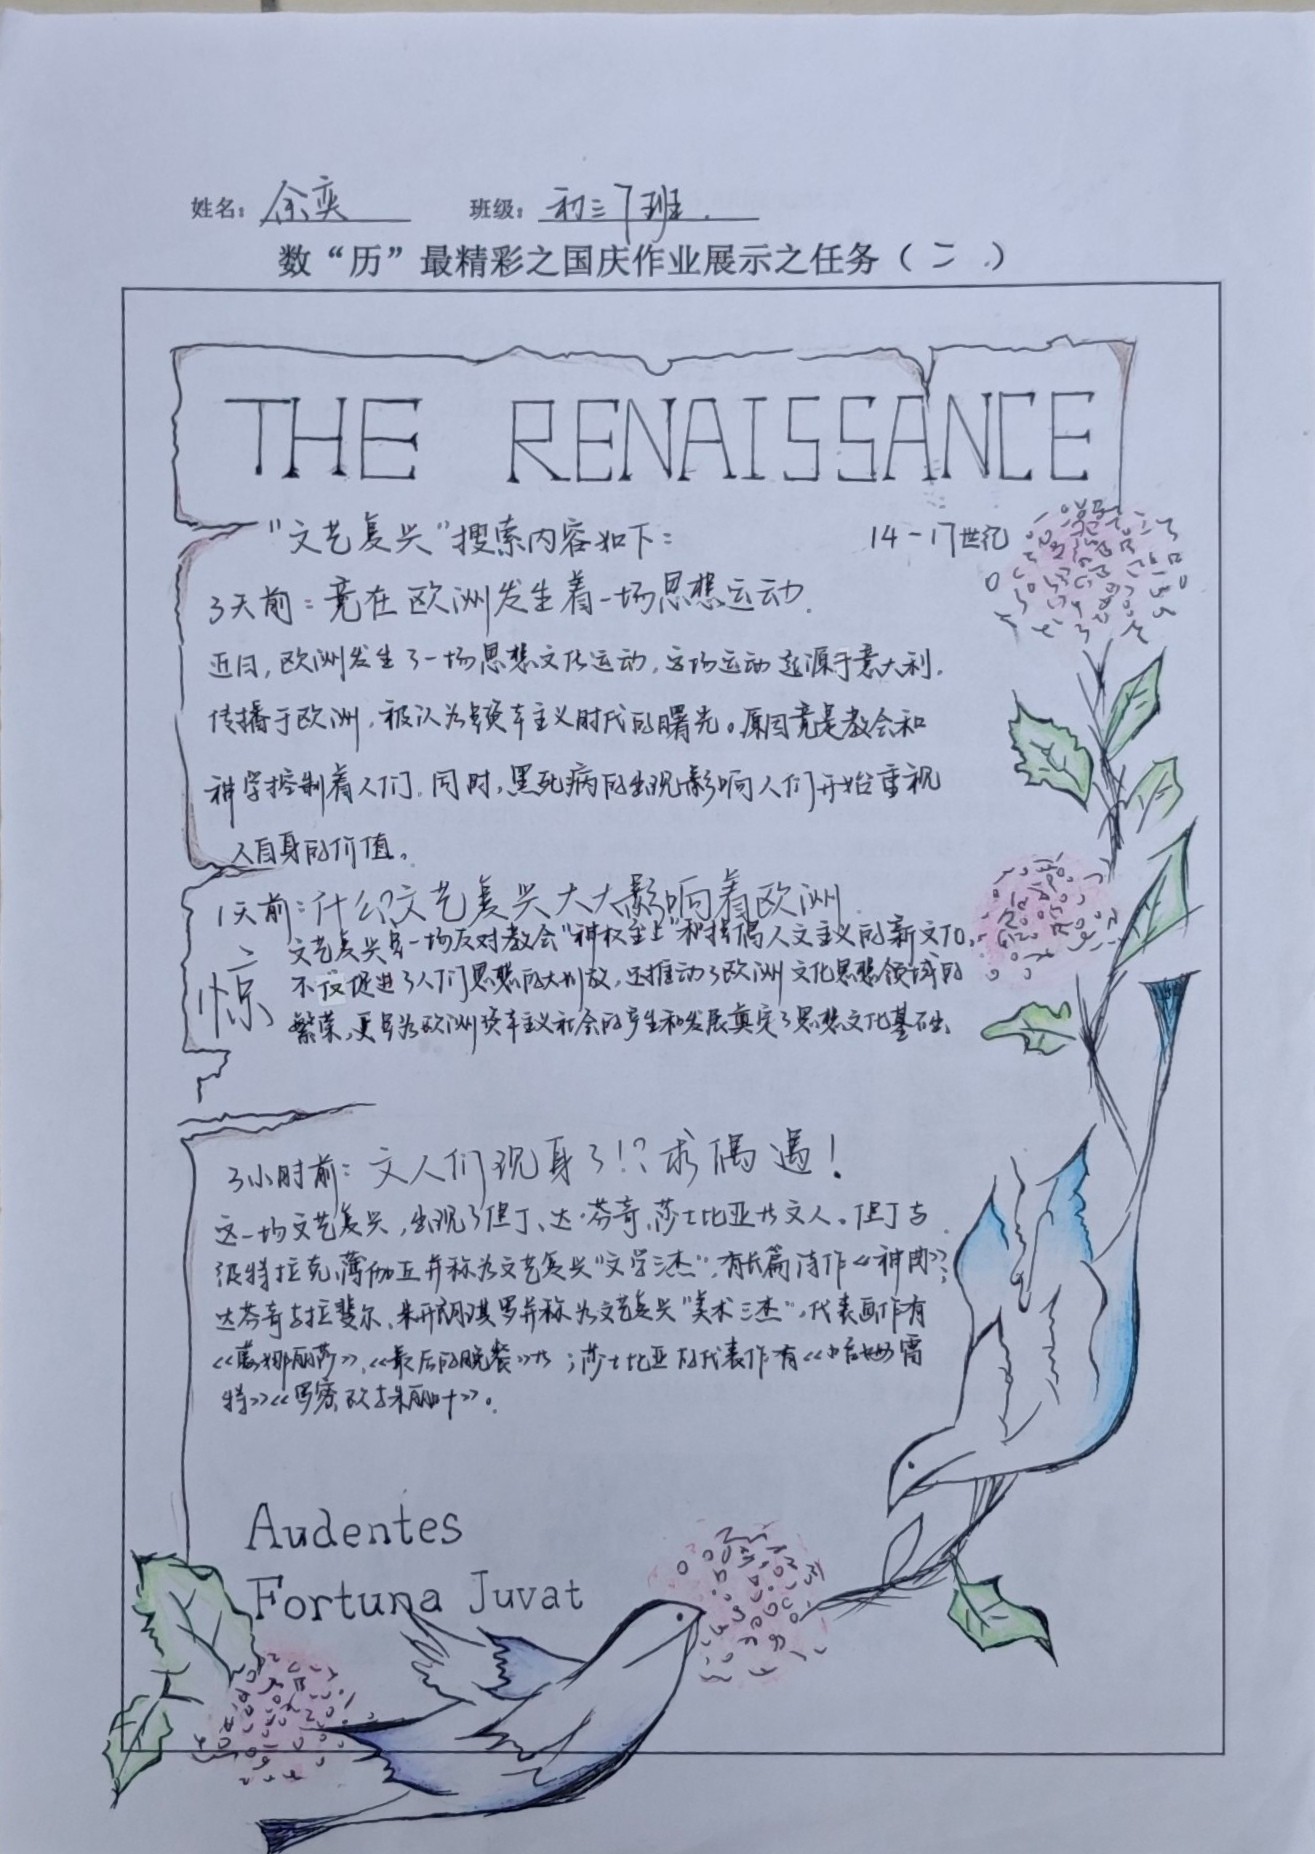 姓名：余奕 班级：初三7班.
数“历”最精彩之国庆作业展示之任务（二.）
THE RENAISSANCE
“文艺复兴”搜索内容如下： 14-17世纪
3天前：竟在欧洲发生着一场思想运动.
近日，欧洲发生了一场思想文化运动，这场运动起源于意大利.
传播于欧洲，被认为是资本主义时代的曙光。原因竟是教会和
神学控制着人们，同时，黑死病的出现影响人们开始重视
人自身的价值。
1天前：什么？文艺复兴大大影响着欧洲.
惊
文艺复兴是一场反对教会“神权至上”和提倡人文主义的新文化，
不仅促进了人们思想的大刂放，还推动了欧洲文化思想领域的
繁荣，更是为欧洲资本主义社会的产生和发展奠定了思想文化基础.
3小时前：文人们现身了！？求偶遇！
这一场文艺复兴，出现了但丁、达·芬奇、莎士比亚等文人。但丁与
彼特拉克，薄伽丘并称为文艺复兴“文学三杰”，有长篇诗作《神曲》；
达芬奇与拉斐尔、米开朗琪罗并称为文艺复兴“美术三杰”，代表画作有
《蒙娜丽莎》、《最后的晚餐》等；莎士比亚的代表作有《哈姆雷
特》《罗密欧与朱丽叶》。
Audentes
Fortuna Juvat